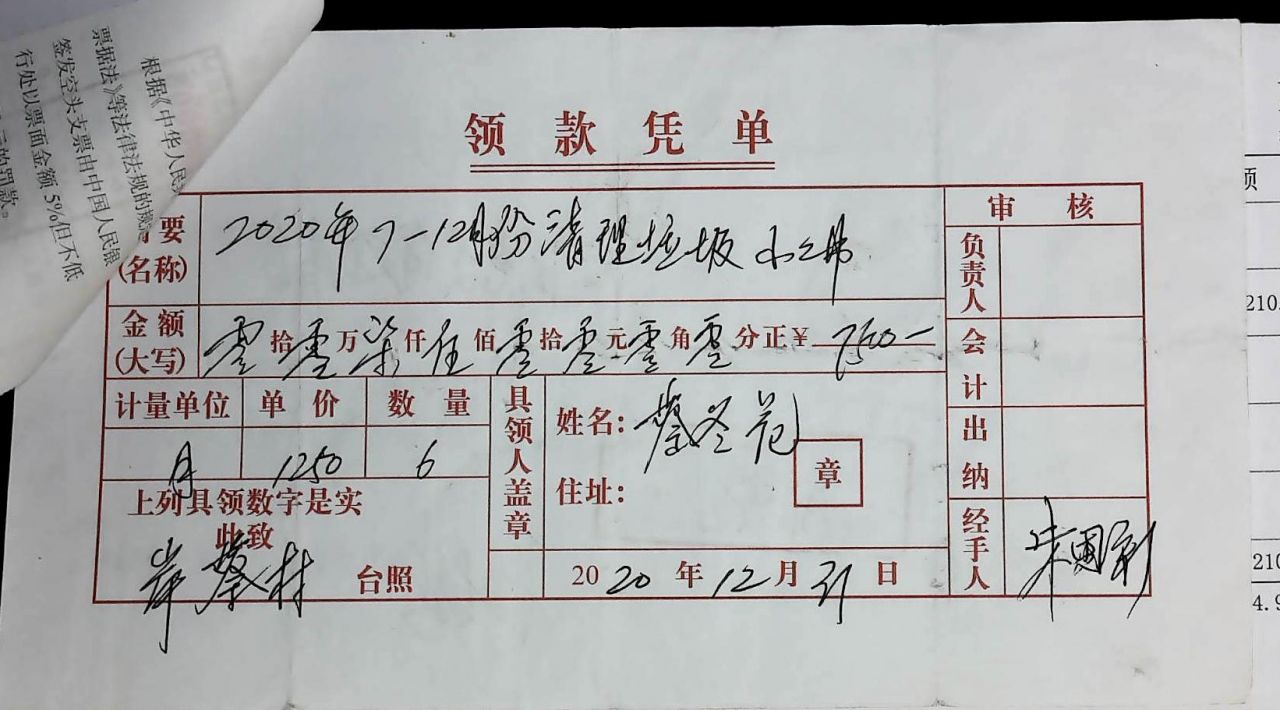 根据《中华人民
票据法》等法律法规的规
签发空头支票由中国人民银
行处以票面金额5%但不低
元的罚款。
领款凭单
要
(名称)
2020年7-12月份清理垃圾
金额
(大写)
零拾零万柒仟伍佰零拾零元零角零分正¥7500-
计量单位 单价 数量
月 1250 6
上列具领数字是实
此致
岸蔡村 台照
具领人盖章
姓名:蔡冬花
章
住址:
2020年12月31日
审核
负责人
会计
出纳
经手人
朱国
项
210
210
4.9